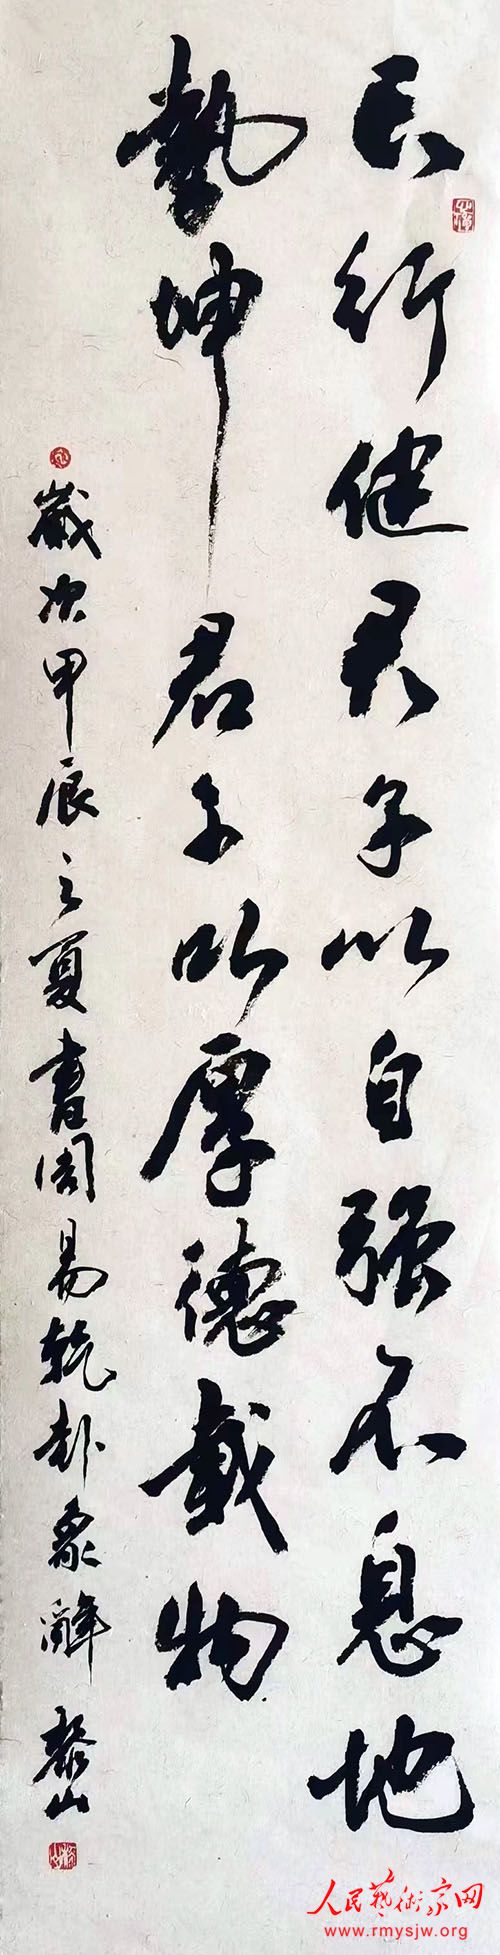 天行健君子以自强不息地
勢坤君子以厚德載物
歲次甲辰之夏書周易乾卦象辭 黎山
人民藝術家网
www.rmysjw.org